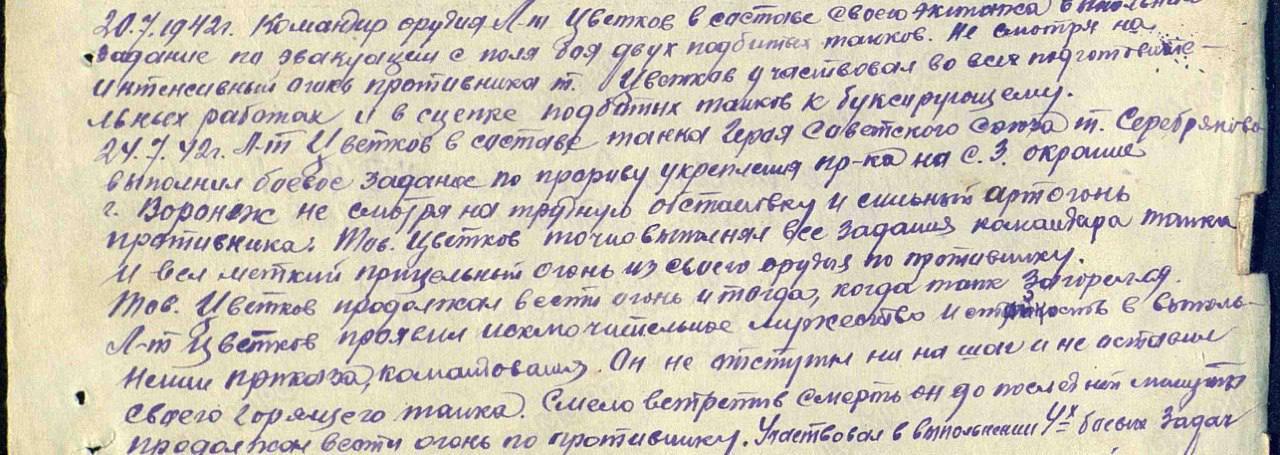 20.7.1942г. Командир орудия Л-т Цветков в составе своего экипажа выполнил
задание по эвакуации с поля боя двух подбитых танков. Не смотря на
интенсивный огонь противника т. Цветков участвовал во всех подготовите-
льных работах и в сцепке подбитых танков к буксирующему.
24.7.42г. Л-т Цветков в составе танка Героя Советского Союза т. Серебрякова
выполнил боевое задание по прорыву укрепления пр-ка на С.З. окраине
г. Воронеж не смотря на трудную обстановку и сильный артогонь
противника. Тов. Цветков точно выполнял все задания командира танка
и вел меткий прицельный огонь из своего орудия по противнику.
Тов. Цветков продолжал вести огонь и тогда, когда танк загорелся.
Л-т Цветков проявил исключительное мужество и стойкость в выпол-
нении приказа, командования. Он не отступил ни на шаг и не оставил
своего горящего танка. Смело встретив смерть он до последней минуты
продолжал вести огонь по противнику. Участвовал в выполнении 4х боевых задач